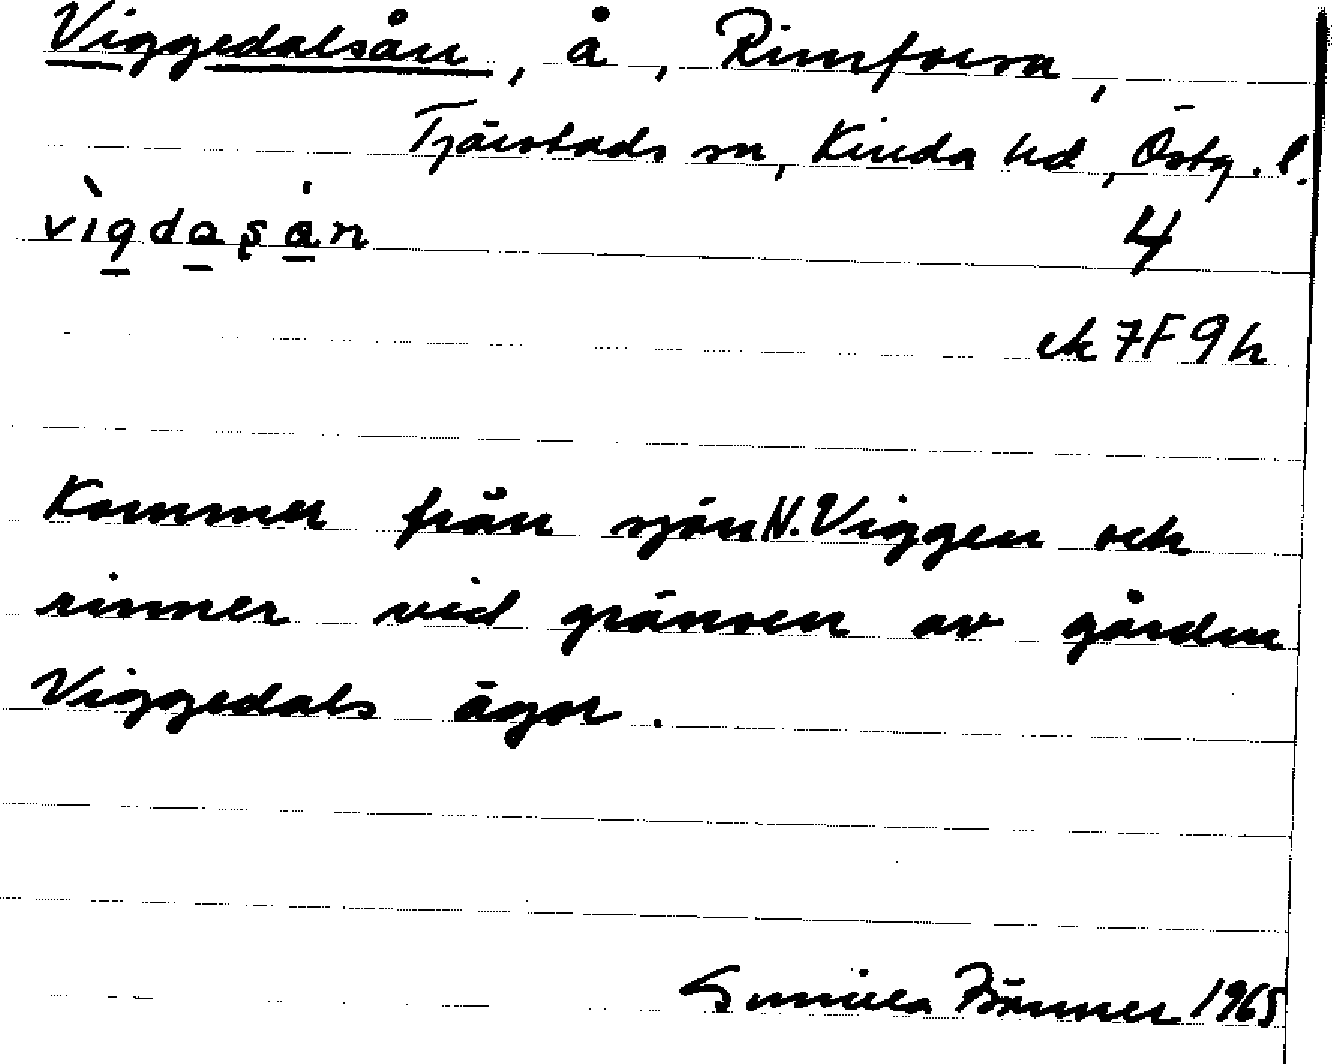 Viggedalsån, å, Rimforsa,
Tjärstads sn, Kinda hd, Östg. l.
vigdasån
4
ek 7F9h
Kommer från sjön N. Viggen och
rinner vid gränsen av gården
Viggedals ägor.
Gunilla 1965